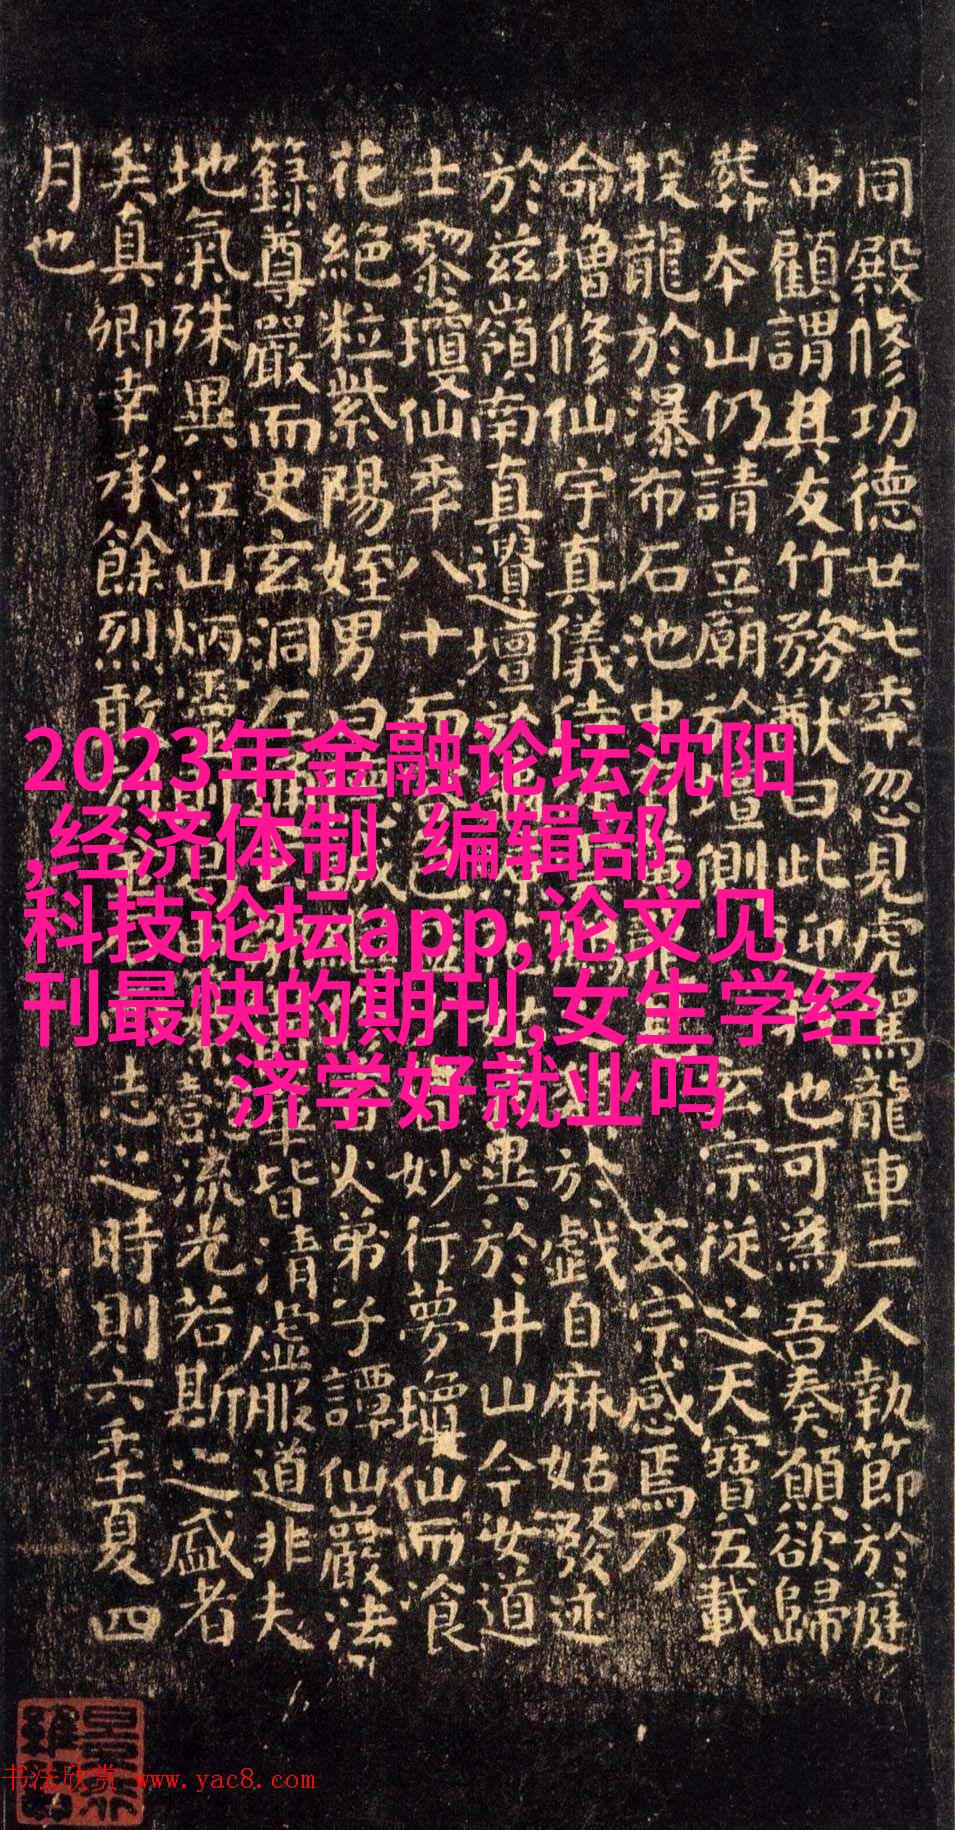 同殿修功德廿七年忽見虎駕龍車二人執節於庭
中顧謂其友竹務猷曰此迎也可為吾奏願欲歸
葬本山仍請立廟於壇側玄宗從之天寶五載
投龍於瀑布石池中玄宗感焉乃
命增修仙宇真儀侍於戲自麻姑發迹
於兹嶺南真遺壇於異於井山今女道
士黎瓊仙年八十而妙行夢瓊仙而飡
花絕粒紫陽姪男曰火弟子譚仙巖法
籙尊嚴而史玄洞左皆清虛服道非夫
地氣殊異江山炳靈則懿流光若斯之盛者
矣真卿幸承餘烈敢志之時則六年夏四
月也
2023年金融论坛沈阳
,经济体制 编辑部,
科技论坛app,论文见
刊最快的期刊,女生学经
济学好就业吗
书法欣赏 www.yac8.com